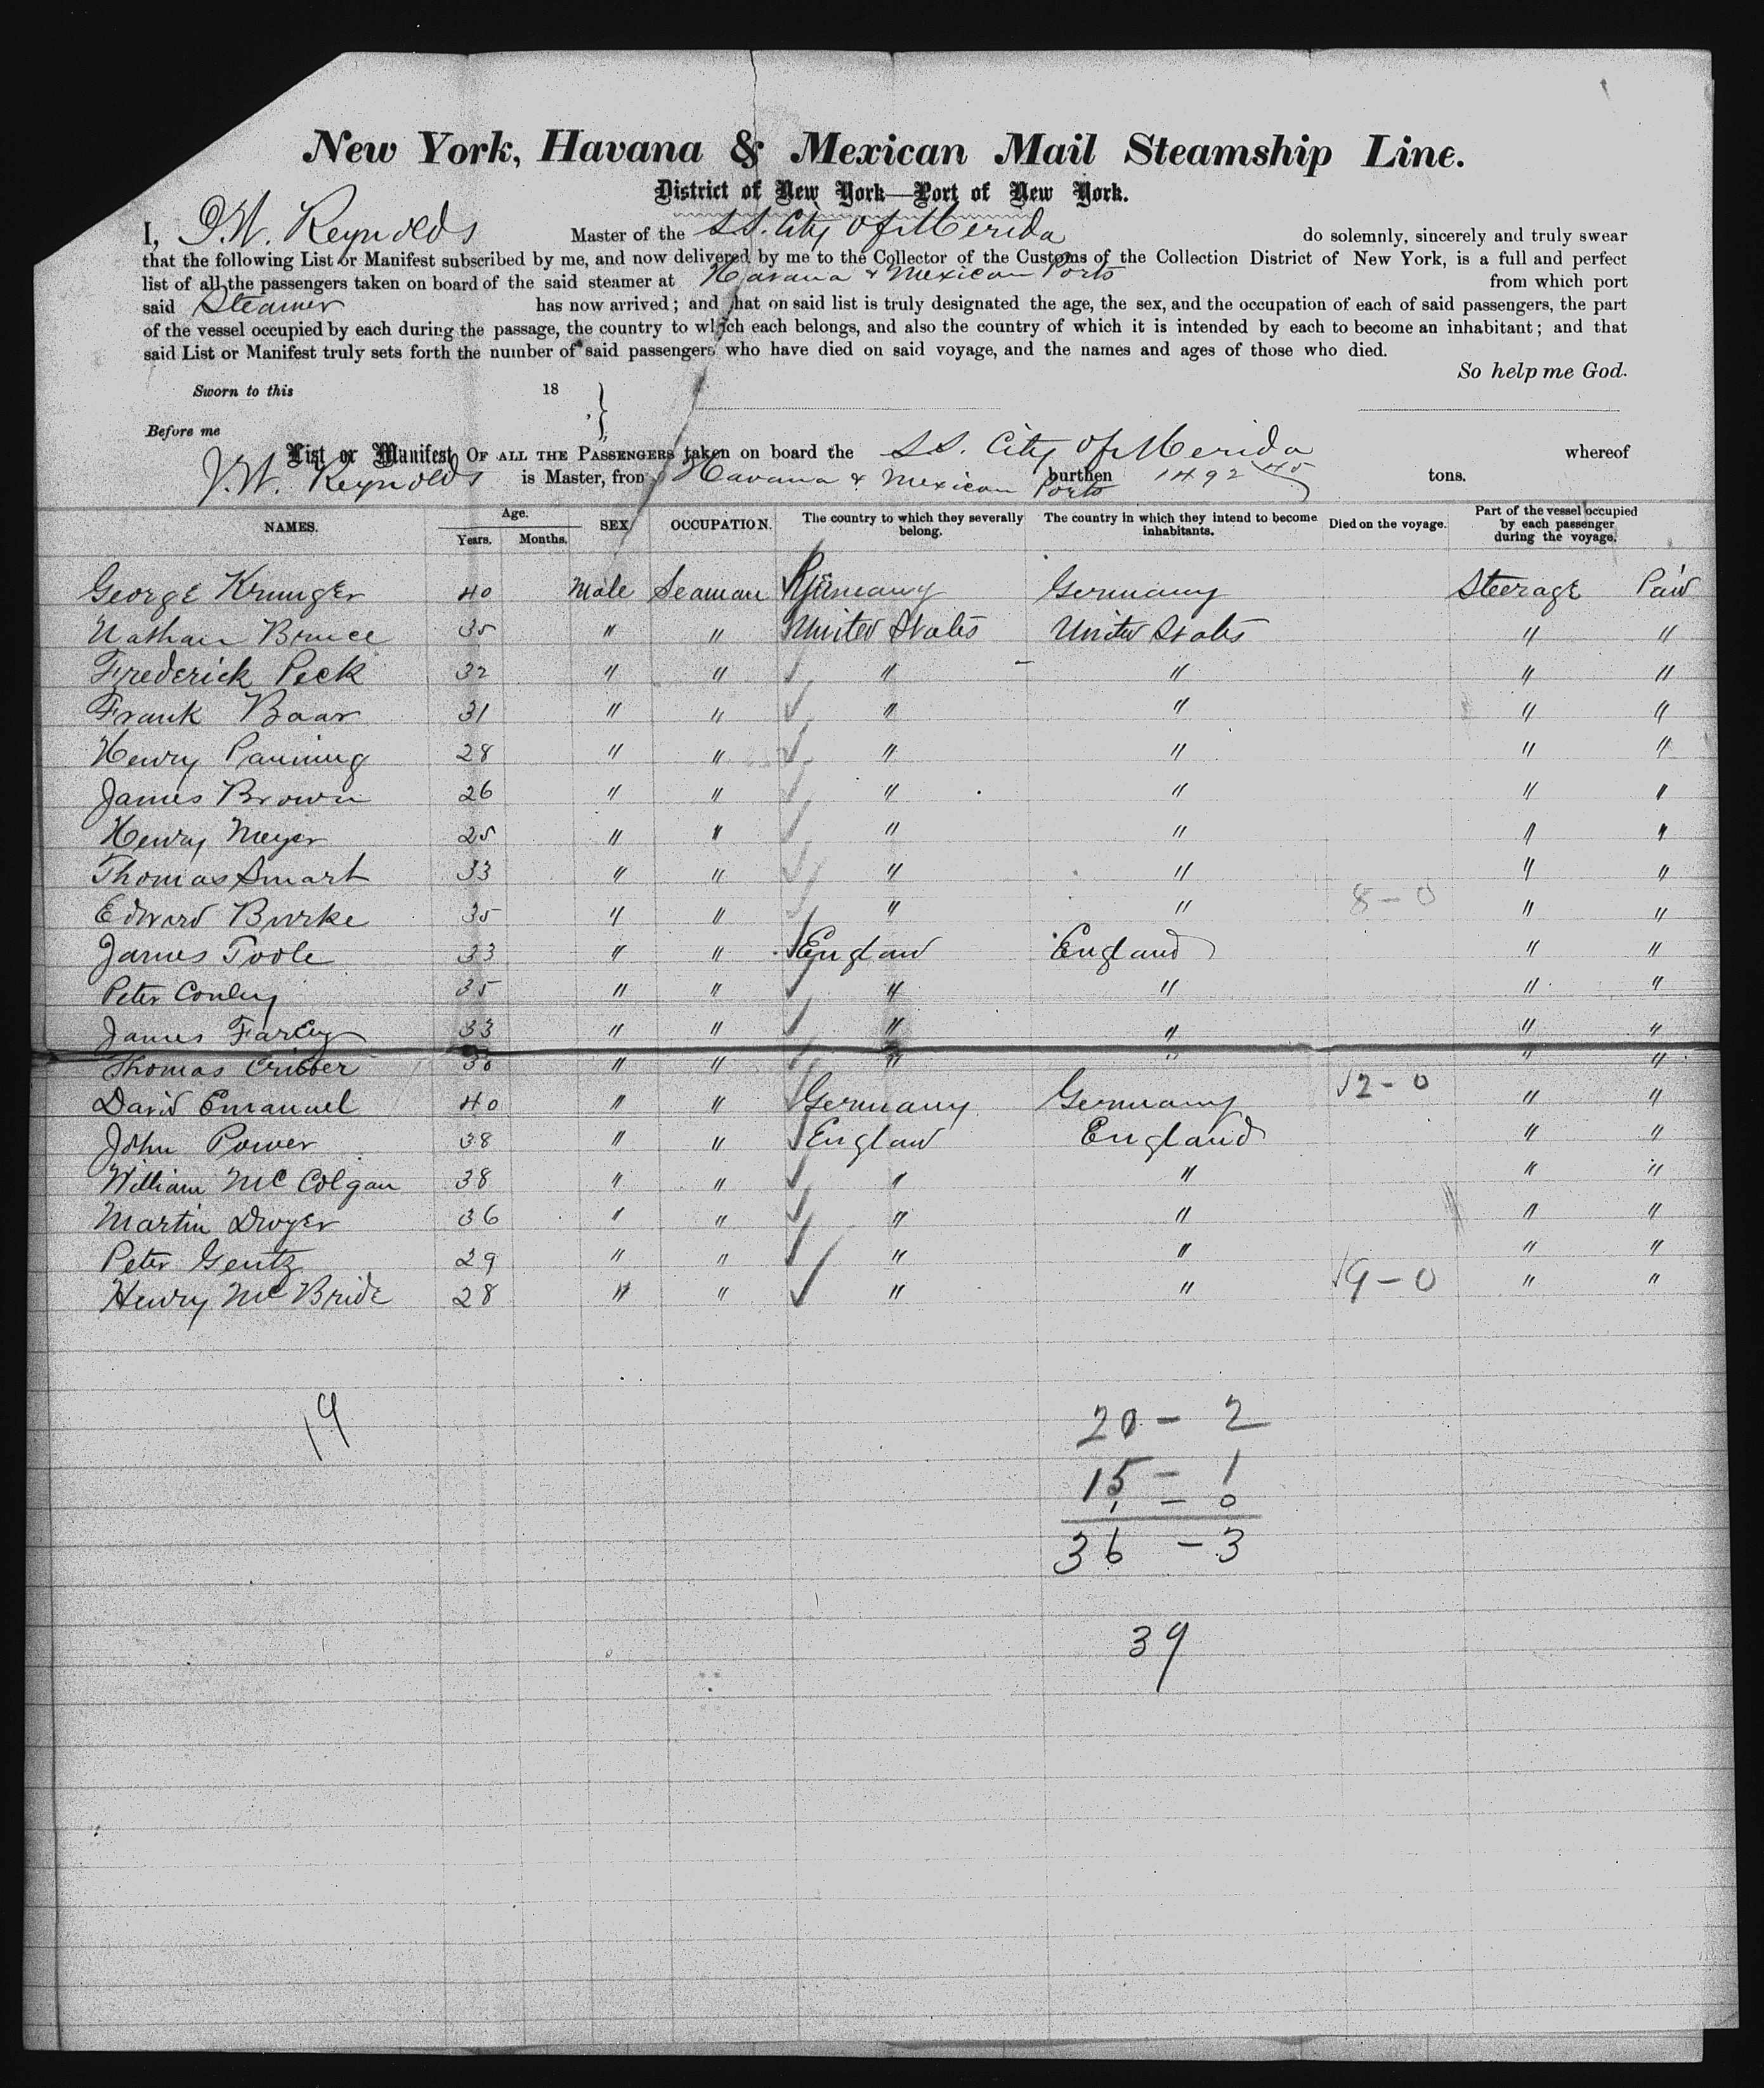 New York, Havana & Mexican Mail Steamship Line.
District of New York—Port of New York.
I, J.W. Reynolds Master of the S.S. City of Merida do solemnly, sincerely and truly swear
that the following List or Manifest subscribed by me, and now delivered by me to the Collector of the Customs of the Collection District of New York, is a full and perfect
list of all the passengers taken on board of the said steamer at Havana & Mexican Ports from which port
said Steamer has now arrived; and that on said list is truly designated the age, the sex, and the occupation of each of said passengers, the part
of the vessel occupied by each during the passage, the country to which each belongs, and also the country of which it is intended by each to become an inhabitant; and that
said List or Manifest truly sets forth the number of said passengers who have died on said voyage, and the names and ages of those who died.
So help me God.
Sworn to this 18
Before me
List or Manifest OF ALL THE PASSENGERS taken on board the S.S. City of Merida whereof
J.W. Reynolds is Master, from Havana & Mexican Ports burthen 1492 45 tons.
NAMES. Age. Years. Months. SEX OCCUPATION. The country to which they severally belong. The country in which they intend to become inhabitants. Died on the voyage. Part of the vessel occupied by each passenger during the voyage.
George Krunger 40 Male Seaman Germany Germany Steerage Paid
Nathan Bruce 35 " " United States United States " "
Frederick Peck 32 " " " " " "
Frank Baar 31 " " " " " "
Henry Panning 28 " " " " " "
James Brown 26 " " " " " "
Henry Meyer 25 " " " " " "
Thomas Smart 33 " " " " " "
Edward Burke 35 " " " " 8-0 " "
James Toole 33 " " England England " "
Peter Conley 35 " " " " " "
James Farley 33 " " " " " "
Thomas " " " " " "
David Emanuel 40 " " Germany Germany 12-0 " "
John Power 38 " " England England " "
William McColgan 38 " " " " " "
Martin Dwyer 36 " " " " " "
Peter Gentz 29 " " " " " "
Henry McBride 28 " " " " 19-0 " "
19
20 - 2
15 - 1
1 - 0
36 - 3
39